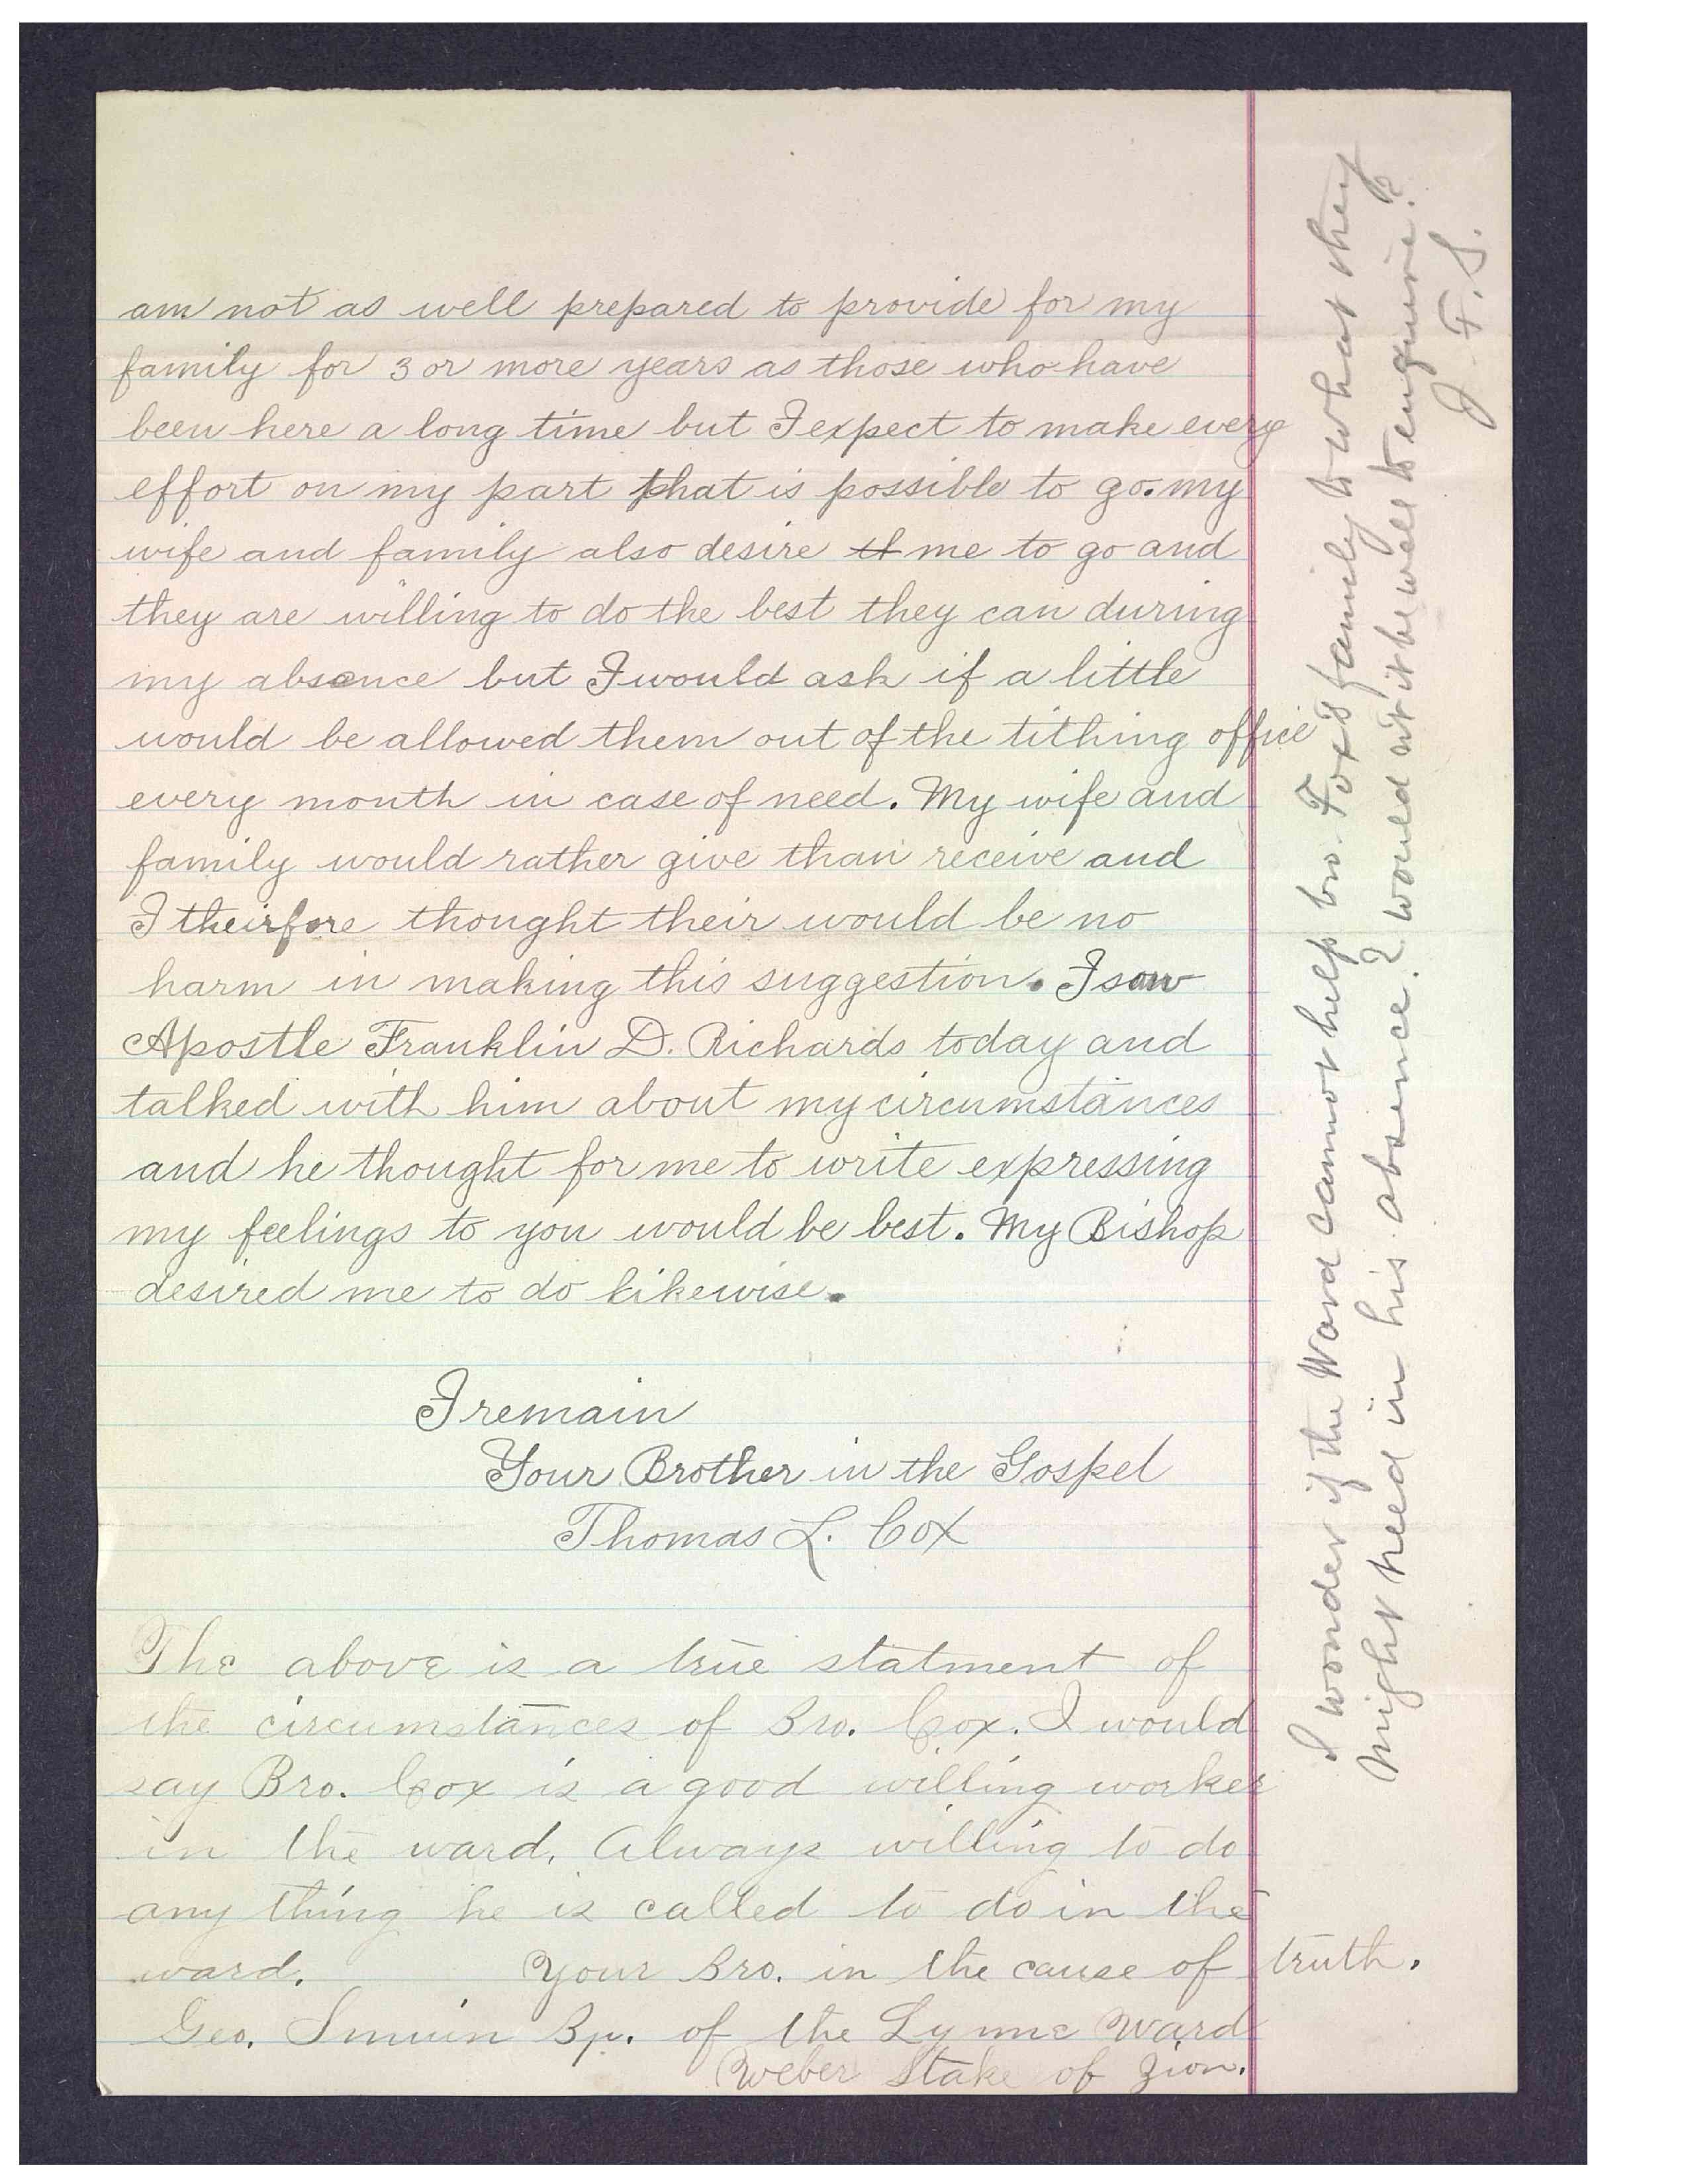 am not as well prepared to provide for my
family for 3 or more years as those who have
been here a long time but I expect to make every
effort on my part that is possible to go. my
wife and family also desire th me to go and
they are willing to do the best they can during
my absence but I would ask if a little
would be allowed them out of the tithing office
every month in case of need. My wife and
family would rather give than receive and
I theirfore thought their would be no
harm in making this suggestion. I saw
Apostle Franklin D. Richards today and
talked with him about my circumstances
and he thought for me to write expressing
my feelings to you would be best. My Bishop
desired me to do likewise.
I remain
Your Brother in the Gospel
Thomas L. Cox
The above is a true statment of
the circumstances of Bro. Cox. I would
say Bro. Cox is a good willing worker
in the ward, Always willing to do
any thing he is called to do in the
ward. Your Bro. in the cause of truth.
Geo. Smuin Bp. of the Lynne Ward
Weber Stake of Zion.
I wonder if the Ward cannot help bro. Fox's family to what they
might need in his absence? would it be well to enquire?
J. F. S.